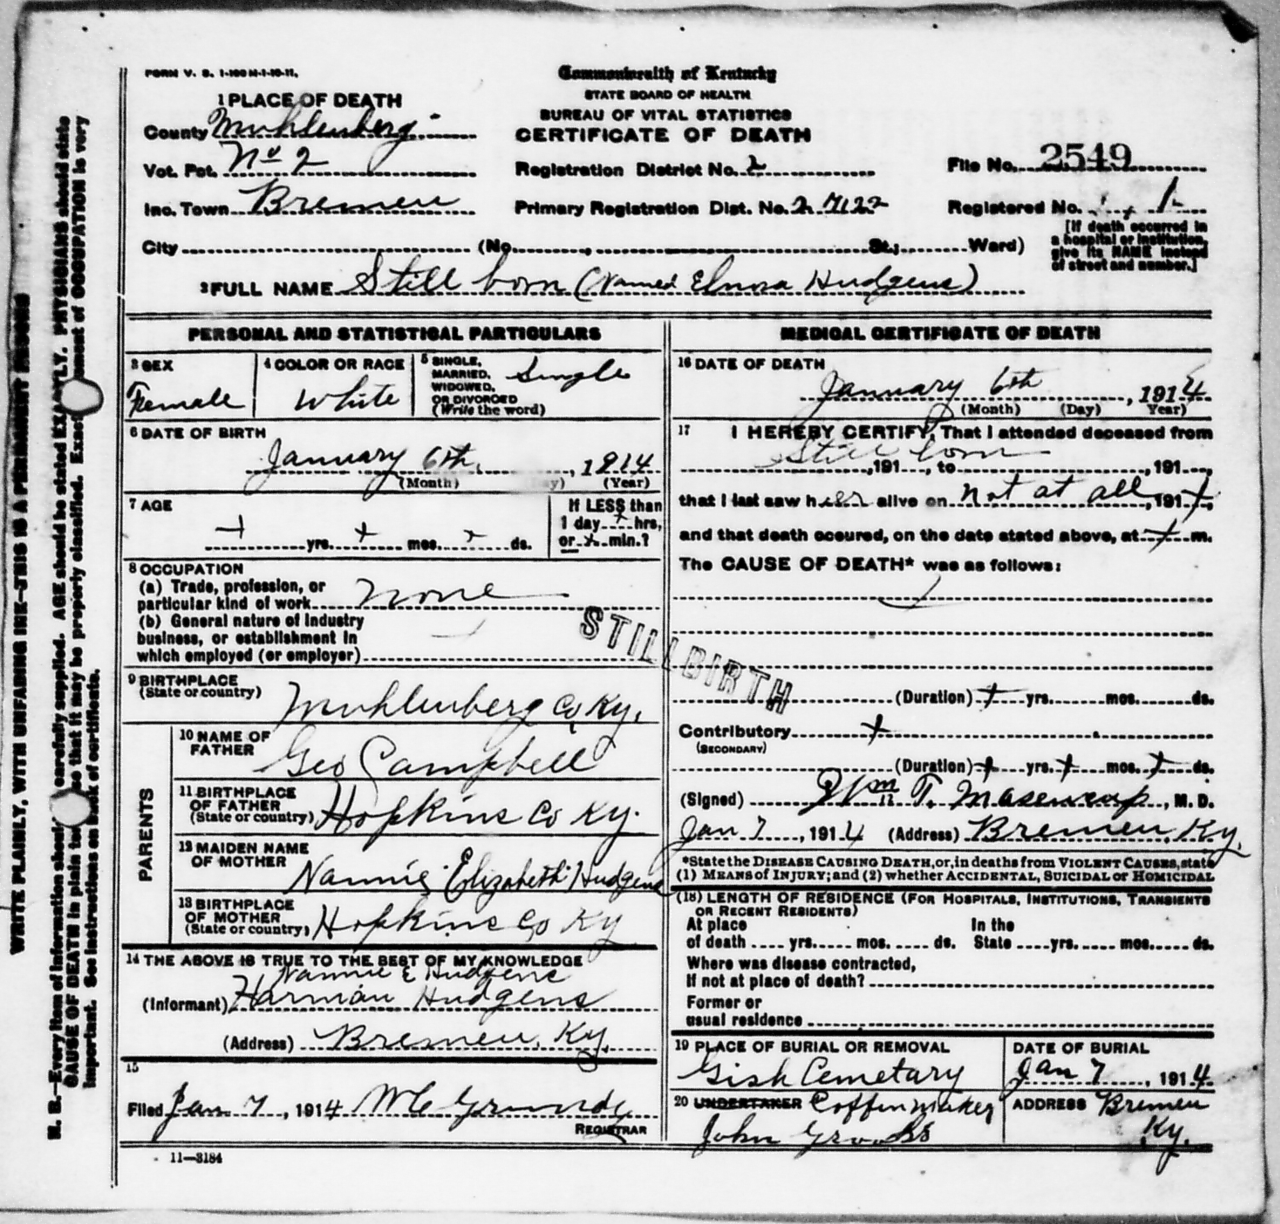 FORM V. S. 1-100 M-1-10-11.
Commonwealth of Kentucky
STATE BOARD OF HEALTH
BUREAU OF VITAL STATISTICS
CERTIFICATE OF DEATH
1 PLACE OF DEATH
County Muhlenberg
Vot. Pct. No 2
Inc. Town Bremen
Registration District No. 2
Primary Registration Dist. No. 2 7122
File No. 2549
Registered No. 1
[If death occurred in
a hospital or institution,
give its NAME instead
of street and number.]
City (No. , St.; Ward)
2 FULL NAME Still born (Named Elnora Hudgens)
PERSONAL AND STATISTICAL PARTICULARS
3 SEX
Female
4 COLOR OR RACE
White
5 SINGLE,
MARRIED,
WIDOWED,
OR DIVORCED
(Write the word)
Single
6 DATE OF BIRTH
January 6th, , 1914
(Month) (Day) (Year)
7 AGE
yrs. mos. ds.
If LESS than
1 day hrs,
or min.?
8 OCCUPATION
(a) Trade, profession, or
particular kind of work None
(b) General nature of industry
business, or establishment in
which employed (or employer)
9 BIRTHPLACE
(State or country)
Muhlenberg Co Ky.
PARENTS
10 NAME OF
FATHER
Geo Campbell
11 BIRTHPLACE
OF FATHER
(State or country)
Hopkins Co Ky.
12 MAIDEN NAME
OF MOTHER
Nannie Elizabeth Hudgens
13 BIRTHPLACE
OF MOTHER
(State or country)
Hopkins Co Ky
14 THE ABOVE IS TRUE TO THE BEST OF MY KNOWLEDGE
Nannie E Hudgens
(Informant) Harman Hudgens
(Address) Bremen, Ky.
15
Filed Jan 7 , 1914 W C Grundy
REGISTRAR
11—3184
STILLBIRTH
MEDICAL CERTIFICATE OF DEATH
16 DATE OF DEATH
January 6th , 1914
(Month) (Day) Year)
17 I HEREBY CERTIFY, That I attended deceased from
Still born
,191 , to ,191 ,
that I last saw her alive on not at all, 191 ,
and that death occured, on the date stated above, at m.
The CAUSE OF DEATH* was as follows:
(Duration) yrs. mos. ds.
Contributory
(SECONDARY)
(Duration) yrs. mos. ds.
(Signed) Wm T. , M. D.
Jan 7 , 1914 (Address) Bremen, Ky.
*State the DISEASE CAUSING DEATH, or, in deaths from VIOLENT CAUSES, state
(1) MEANS OF INJURY; and (2) whether ACCIDENTAL, SUICIDAL or HOMICIDAL
(18) LENGTH OF RESIDENCE (FOR HOSPITALS, INSTITUTIONS, TRANSIENTS
OR RECENT RESIDENTS)
At place In the
of death yrs. mos. ds. State yrs. mos. ds.
Where was disease contracted,
If not at place of death?
Former or
usual residence
19 PLACE OF BURIAL OR REMOVAL
Gish Cemetary
DATE OF BURIAL
Jan 7 , 1914
20 UNDERTAKER Coffin maker
John
ADDRESS Bremen
Ky.
WRITE PLAINLY, WITH UNFADING INK—THIS IS A PERMANENT RECORD
N. B.—Every item of information should carefully supplied. AGE should be stated EXACTLY. PHYSICIANS should state
CAUSE OF DEATH in plain so that it may be properly classified. Exact of OCCUPATION is very
important. See instructions on back of certificate.